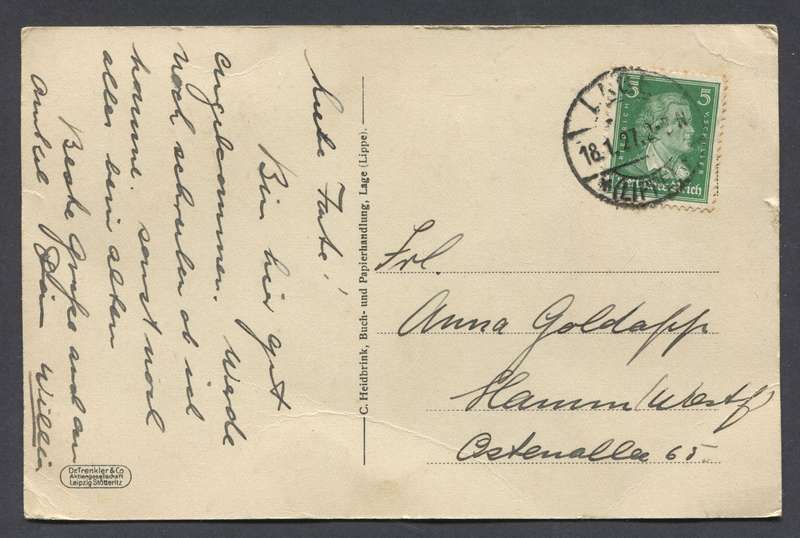 Liebe Tante!
Bin hier gut
angekommen. Werde
noch schreiben ob ich
komme. sonst noch
alles beim alten
Beste Grüße auch an
Onkel Dein Willi
C. Heidbrink, Buch- und Papierhandlung, Lage (Lippe).
Dr. Trenkler & Co
Aktiengesellschaft
Leipzig Stötteritz
LAGE
18.1.27.
(LIPPE)
5 5
FRIEDRICH V. SCHILLER
Deutsches Reich
Frl.
Anna Goldapp
Hamm (Westf
Ostenallee 65